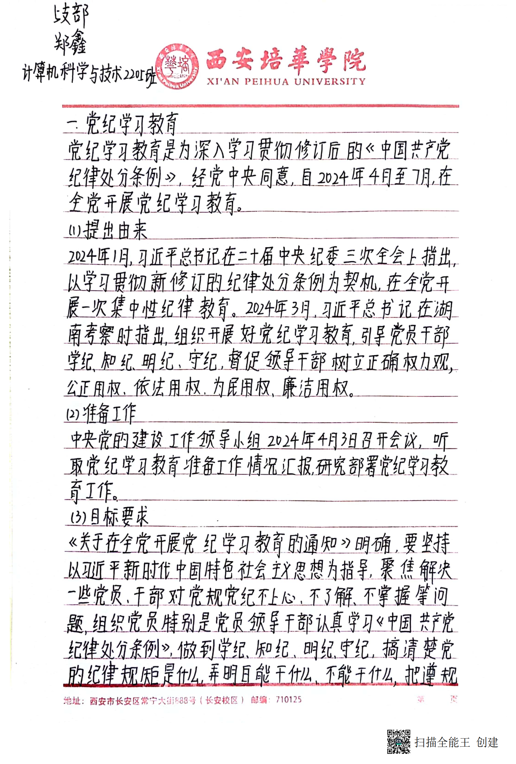 支部
郑鑫
计算机科学与技术2205班
西安培華學院
XI'AN PEIHUA UNIVERSITY
一.党纪学习教育
党纪学习教育是为深入学习贯彻修订后的《中国共产党
纪律处分条例》，经党中央同意，自2024年4月至7月，在
全党开展党纪学习教育。
(1)提出由来
2024年1月，习近平总书记在二十届中央纪委三次全会上指出，
以学习贯彻新修订的纪律处分条例为契机，在全党开
展一次集中性纪律教育。2024年3月，习近平总书记在湖
南考察时指出，组织开展好党纪学习教育，引导党员干部
学纪、知纪、明纪、守纪，督促领导干部树立正确权力观，
公正用权、依法用权、为民用权、廉洁用权。
(2)准备工作
中央党的建设工作领导小组2024年4月3日召开会议，听
取党纪学习教育准备工作情况汇报，研究部署党纪学习教
育工作。
(3)目标要求
《关于在全党开展党纪学习教育的通知》明确，要坚持
以习近平新时代中国特色社会主义思想为指导，聚焦解决
一些党员、干部对党规党纪不上心、不了解、不掌握等问
题，组织党员特别是党员领导干部认真学习《中国共产党
纪律处分条例》，做到学纪、知纪、明纪、守纪，搞清楚党
的纪律规矩是什么，弄明白能干什么、不能干什么，把遵规
地址：西安市长安区常宁大街888号（长安校区） 邮编：710125
第 页
扫描全能王 创建